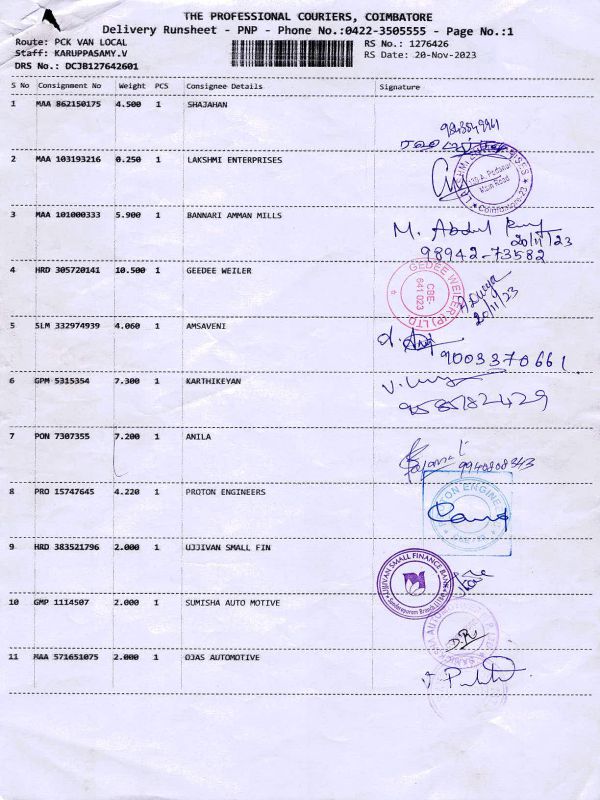 THE PROFESSIONAL COURIERS, COIMBATORE
Delivery Runsheet - PNP - Phone No.:0422-3505555 - Page No.:1
Route: PCK VAN LOCAL
RS No.: 1276426
Staff: KARUPPASAMY.V
RS Date: 20-Nov-2023
DRS No.: DCJB127642601
S No Consignment No Weight PCS Consignee Details Signature
1 MAA 862150175 4.500 1 SHAJAHAN
2 MAA 103193216 0.250 1 LAKSHMI ENTERPRISES
Main Road
Coimbatore-23
3 MAA 101000333 5.900 1 BANNARI AMMAN MILLS
M. Abdul
20/11/23
98942-73582
4 HRD 305720141 10.500 1 GEEDEE WEILER
GEDEE WEILER (P) LTD
CBE-
641 023
20/11/23
5 SLM 332974939 4.060 1 AMSAVENI
9003370661
6 GPM 5315354 7.300 1 KARTHIKEYAN
9585182429
7 PON 7307355 7.200 1 ANILA
9940808343
8 PRO 15747645 4.220 1 PROTON ENGINEERS
9 HRD 383521796 2.000 1 UJJIVAN SMALL FIN
UJJIVAN SMALL FINANCE BANK
10 GMP 1114507 2.000 1 SUMISHA AUTO MOTIVE
11 MAA 571651075 2.000 1 OJAS AUTOMOTIVE